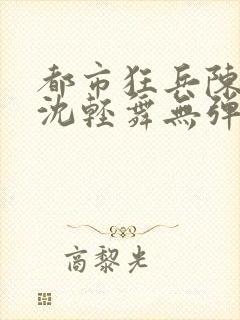 都市狂兵陳
沈輕舞無彈
商黎光